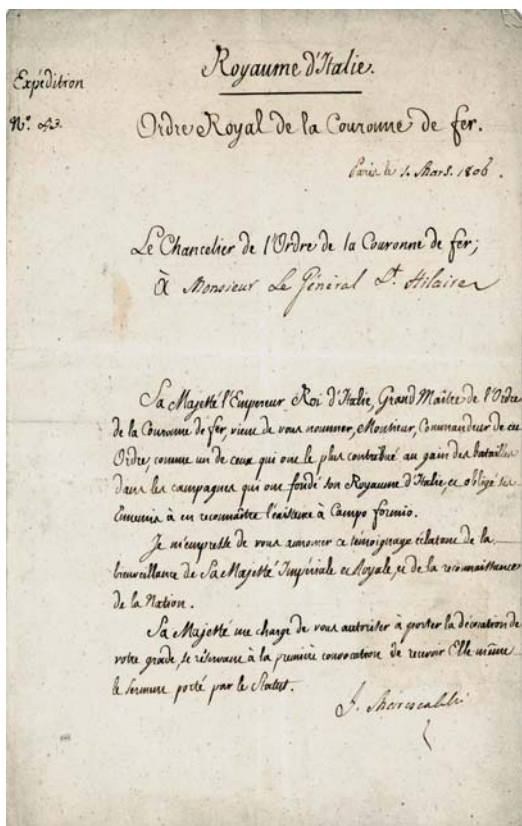 Royaume d'Italie.
Expédition
N.º 43.
Ordre Royal de la Couronne de fer.
Paris le 1. Mars. 1806.
Le Chancelier de l'Ordre de la Couronne de fer;
À Monsieur Le Général St. Hilaire
Sa Majesté l'Empereur Roi d'Italie, Grand Maître de l'Ordre
de la Couronne de fer, vient de vous nommer, Monsieur, Commandeur de cet
Ordre, comme un de ceux qui ont le plus contribué au gain des batailles
dans les campagnes qui ont fondé son Royaume d'Italie, et obligé ses
Ennemis à en reconnaître l'existence à Campo formio.
Je m'empresse de vous annoncer ce témoignage éclatant de la
bienveillance de Sa Majesté Impériale et Royale, et de la reconnaissance
de la Nation.
Sa Majesté me charge de vous autoriser à porter la décoration de
votre grade, se réservant à la première convocation de recevoir Elle-même
le serment porté par le Statut.